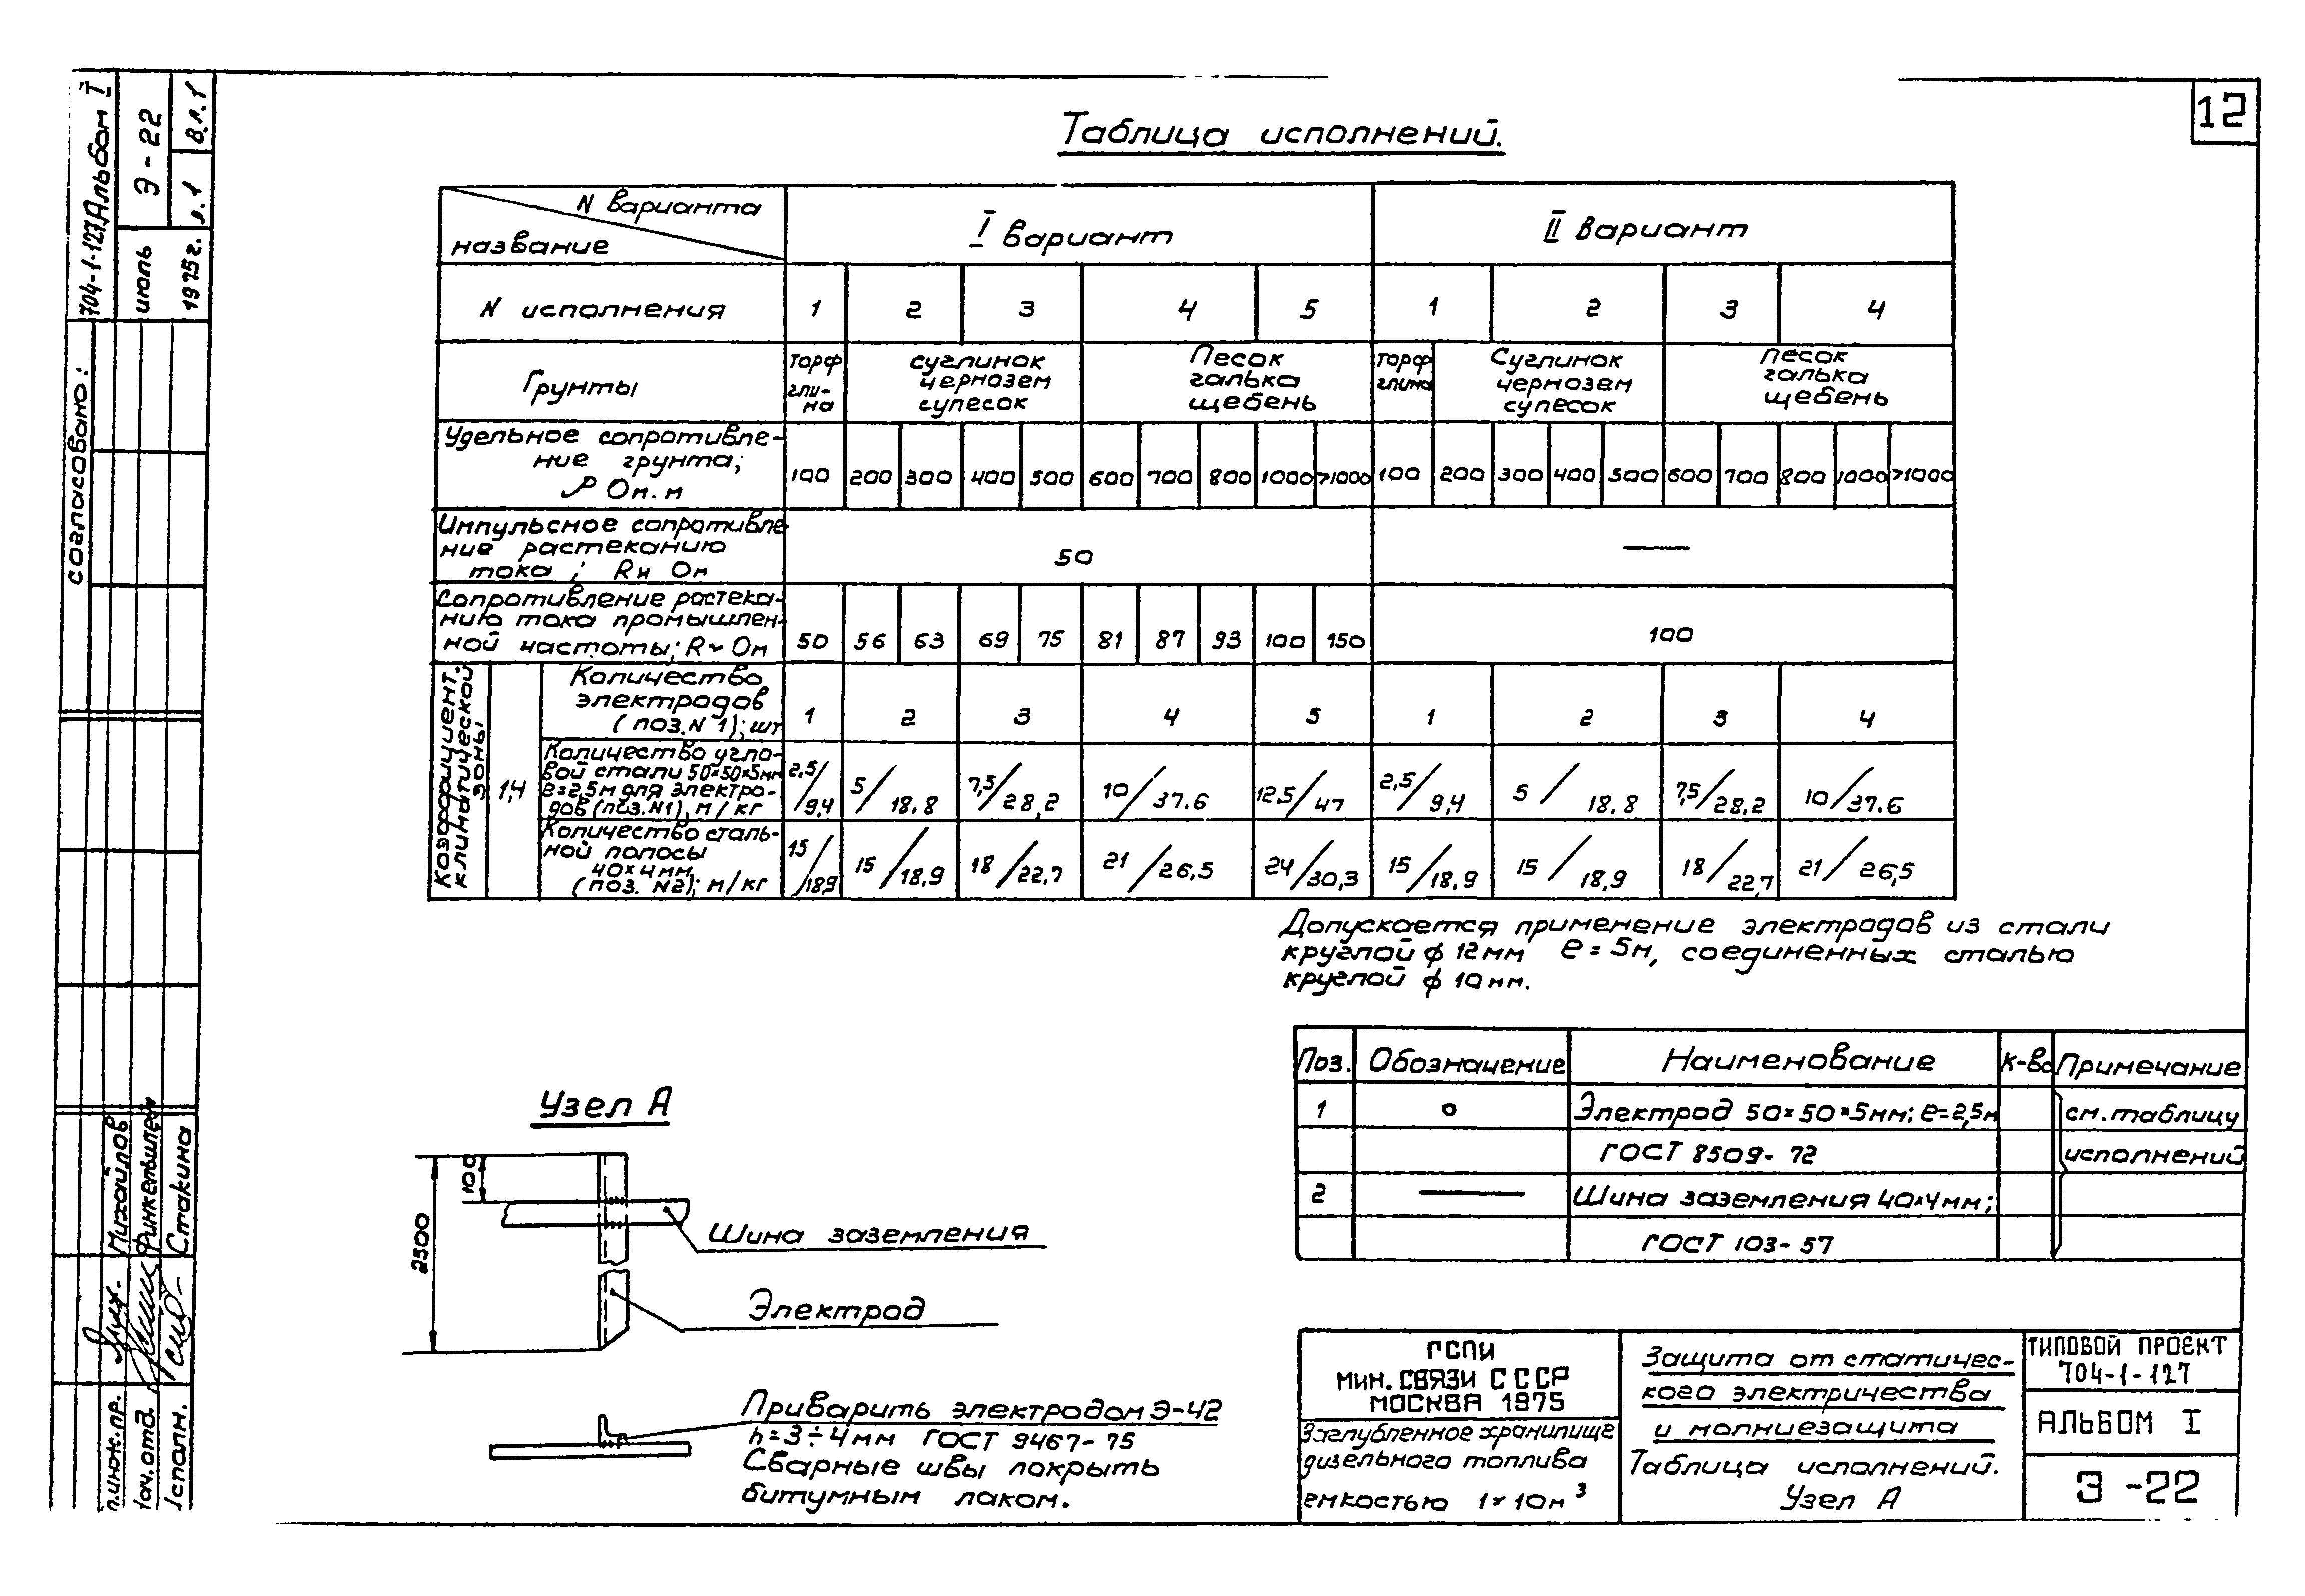 12
Таблица исполнений.
N варианта
название
I вариант
II вариант
N исполнения
1 2 3 4 5 1 2 3 4
Грунты
торф
гли-
на
суглинок
чернозем
супесок
Песок
галька
щебень
торф
глина
Суглинок
чернозем
супесок
песок
галька
щебень
Удельное сопротивле-
ние грунта;
ρ Ом.м
100 200 300 400 500 600 700 800 1000 >1000 100 200 300 400 500 600 700 800 1000 >1000
Импульсное сопротивле
ние растеканию
тока ; Rи Ом
50
—
Сопротивление растека-
нию тока промышлен-
ной частоты; R~ Ом
50 56 63 69 75 81 87 93 100 150 100
Коэффициент
климатической
зоны
1,4
Количество
электродов
(поз. N 1); шт
1 2 3 4 5 1 2 3 4
Количество угло-
вой стали 50×50×5мм
e=2,5м для электро-
дов (поз. N1), м/кг
2,5/9,4 5/18.8 7,5/28,2 10/37.6 12,5/47 2,5/9,4 5/18.8 7,5/28,2 10/37.6
Количество сталь-
ной полосы
40×4мм
(поз. N2); м/кг
15/18,9 15/18,9 18/22,7 21/26,5 24/30,3 15/18,9 15/18,9 18/22,7 21/26,5
Допускается применение электродов из стали
круглой ф 12мм e=5м, соединенных сталью
круглой ф 10мм.
Поз. Обозначение Наименование К-во Примечание
1 Электрод 50×50×5мм; e=2,5м см. таблицу
ГОСТ 8509-72 исполнений
2 Шина заземления 40×4мм;
ГОСТ 103-57
Узел А
100
2500
Шина заземления
Электрод
Приварить электродом Э-42
h=3÷4мм ГОСТ 9467-75
Сварные швы покрыть
битумным лаком.
ГСПИ
МИН. СВЯЗИ СССР
МОСКВА 1975
Заглубленное хранилище
дизельного топлива
емкостью 1×10м³
Защита от статичес-
кого электричества
и молниезащита
Таблица исполнений.
Узел А
ТИПОВОЙ ПРОЕКТ
704-1-127
АЛЬБОМ I
Э-22
704-1-127 Альбом I
Э-22
июль
1975г. л.1 В.л.1
согласовано:
Михайлов
Стакина
л.инж.пр.
нач.отд.
Исполн.